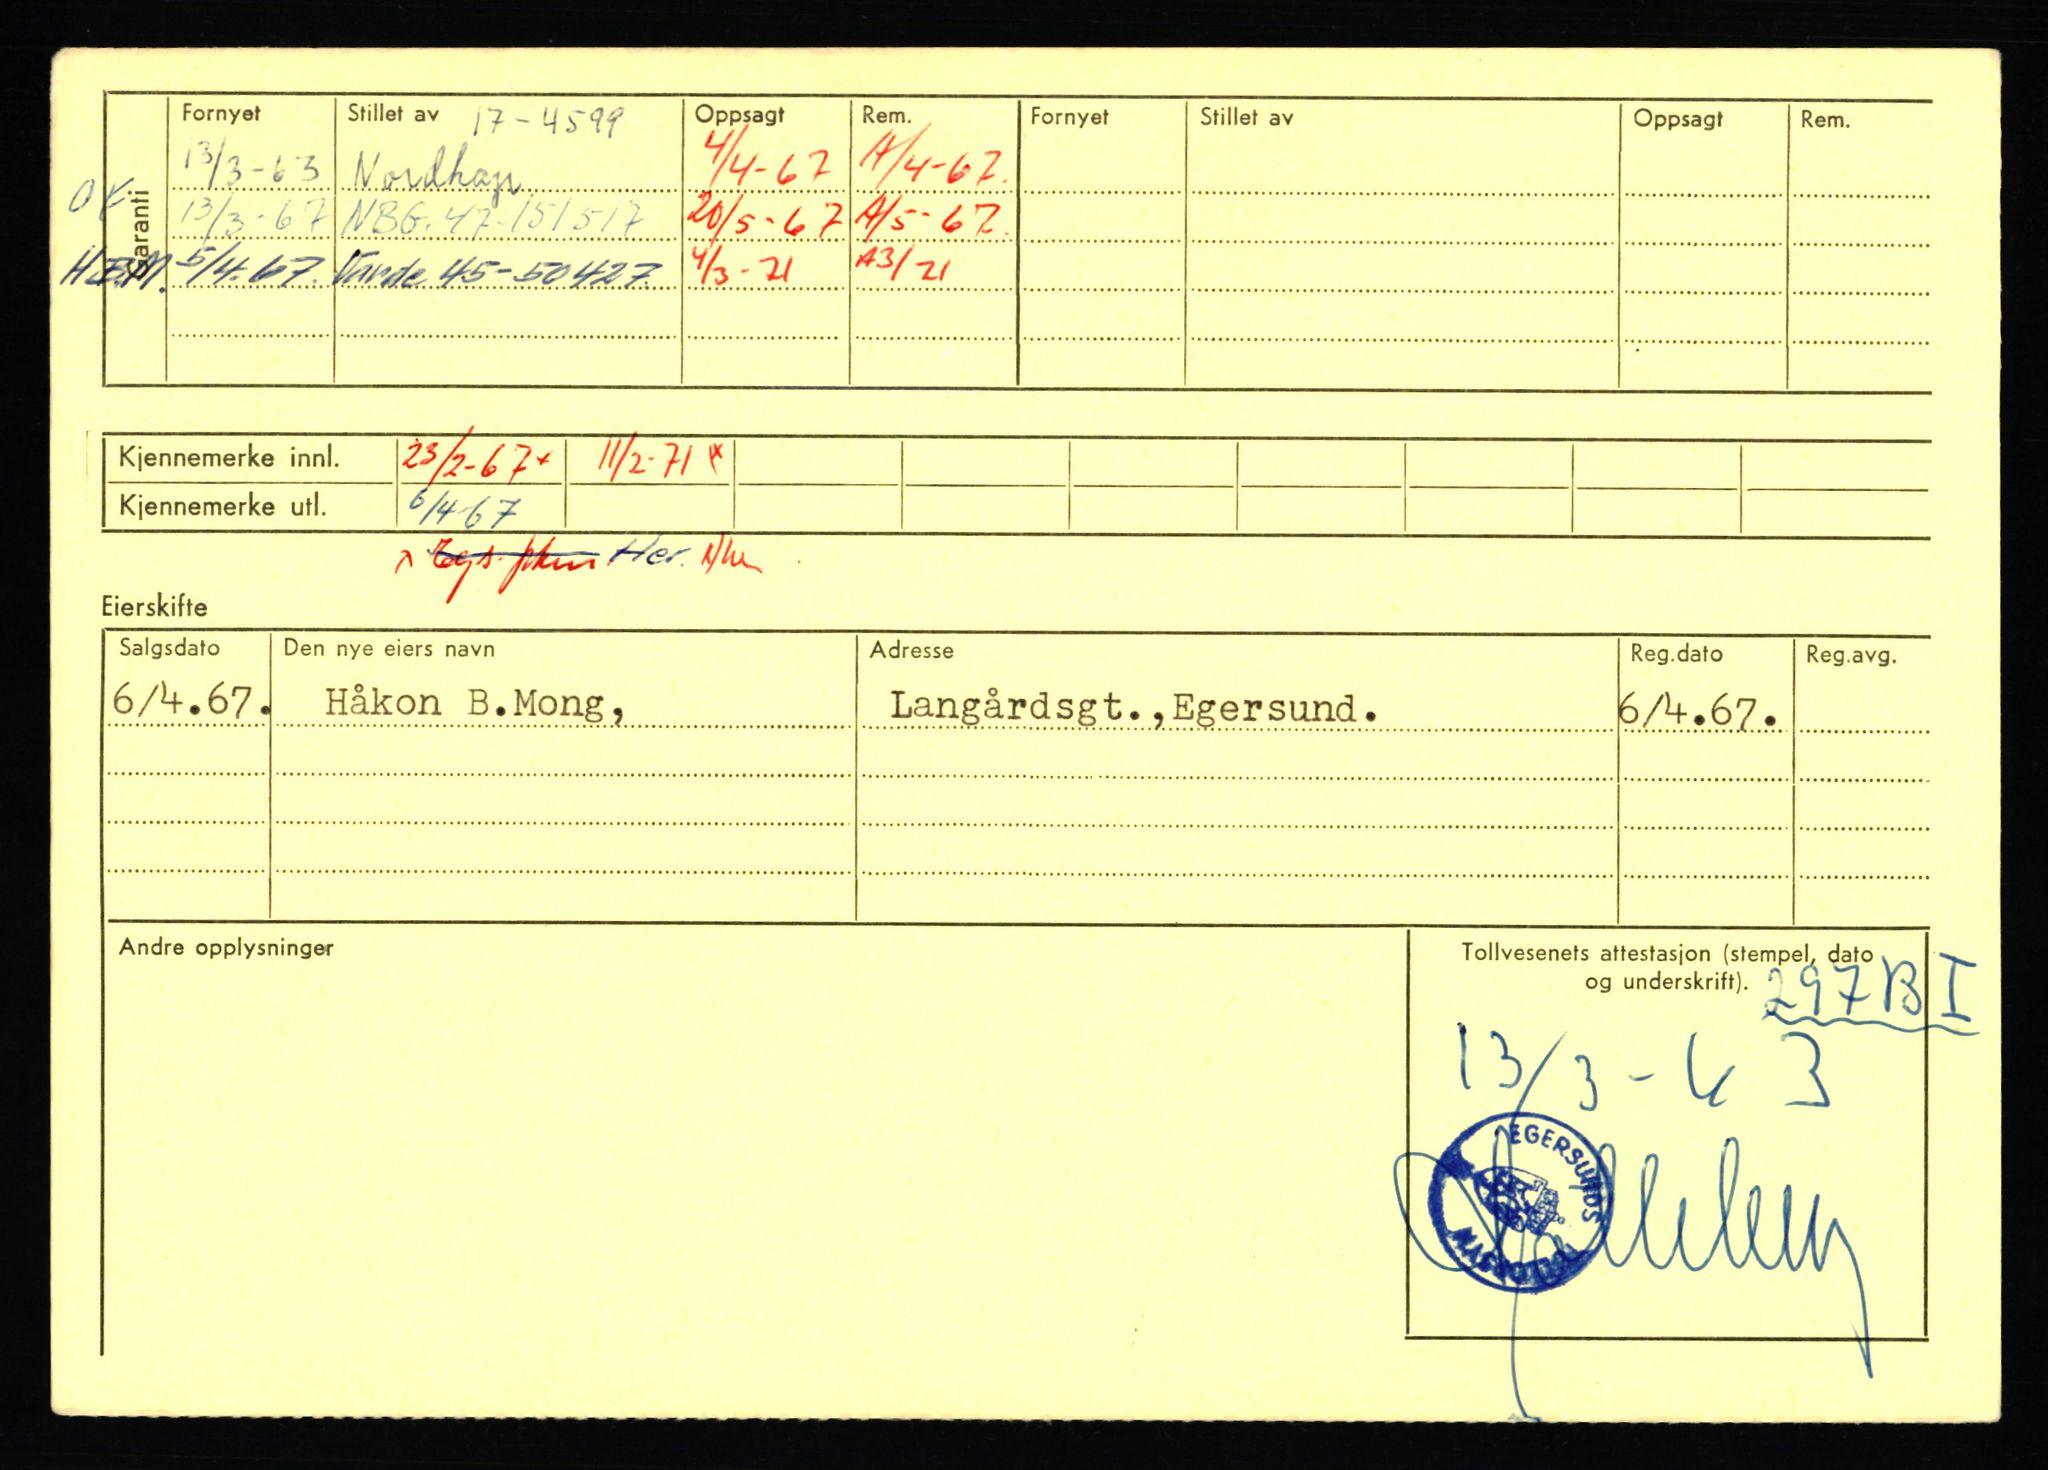 Fornyet Stillet av 17-4599 Oppsagt Rem. Fornyet Stillet av Oppsagt Rem.
Garanti
13/3-63 4/4-67 A/4-67.
OK 13/3-67 NBG. 47-151517 20/5-67 A/5-67.
H.B.M. 5/4.67. Varde 45-50427. 4/3-71 A3/71
Kjennemerke innl. 23/2-67 x 11/2-71 x
Kjennemerke utl. 6/4-67
x Her.
Eierskifte
Salgsdato Den nye eiers navn Adresse Reg.dato Reg.avg.
6/4.67. Håkon B.Mong, Langårdsgt.,Egersund. 6/4.67.
Andre opplysninger
Tollvesenets attestasjon (stempel, dato
og underskrift).
297 B I
13/3-63
EGERSUNDS